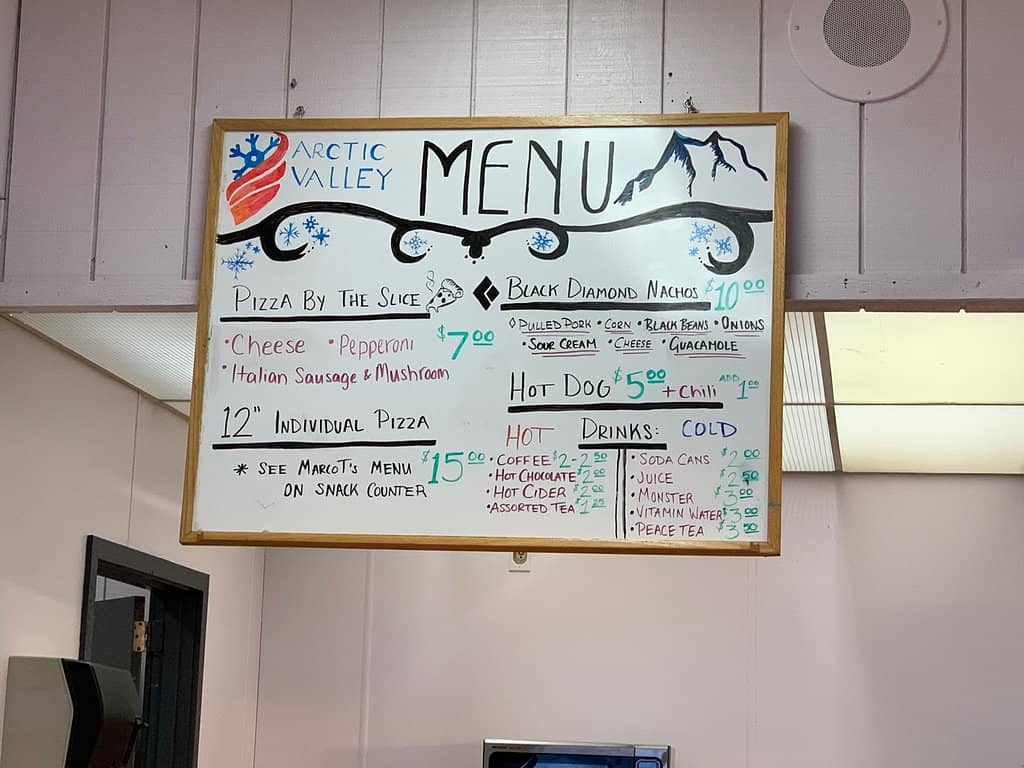 ARCTIC
VALLEY
MENU
PIZZA BY THE SLICE
• Cheese • Pepperoni $7.00
• Italian Sausage & Mushroom
12" INDIVIDUAL PIZZA
* SEE MARCOT'S MENU $15.00
ON SNACK COUNTER
BLACK DIAMOND NACHOS $10.00
◊ PULLED PORK • CORN • BLACK BEANS • ONIONS
• SOUR CREAM • CHEESE • GUACAMOLE
HOT DOG $5.00 + Chili ADD 1.00
HOT DRINKS: COLD
• COFFEE $2-2.50
• HOT CHOCOLATE $2.00
• HOT CIDER $2.00
• ASSORTED TEA $1.25
• SODA CANS $2.00
• JUICE $2.50
• MONSTER $3.00
• VITAMIN WATER $3.00
• PEACE TEA $3.50